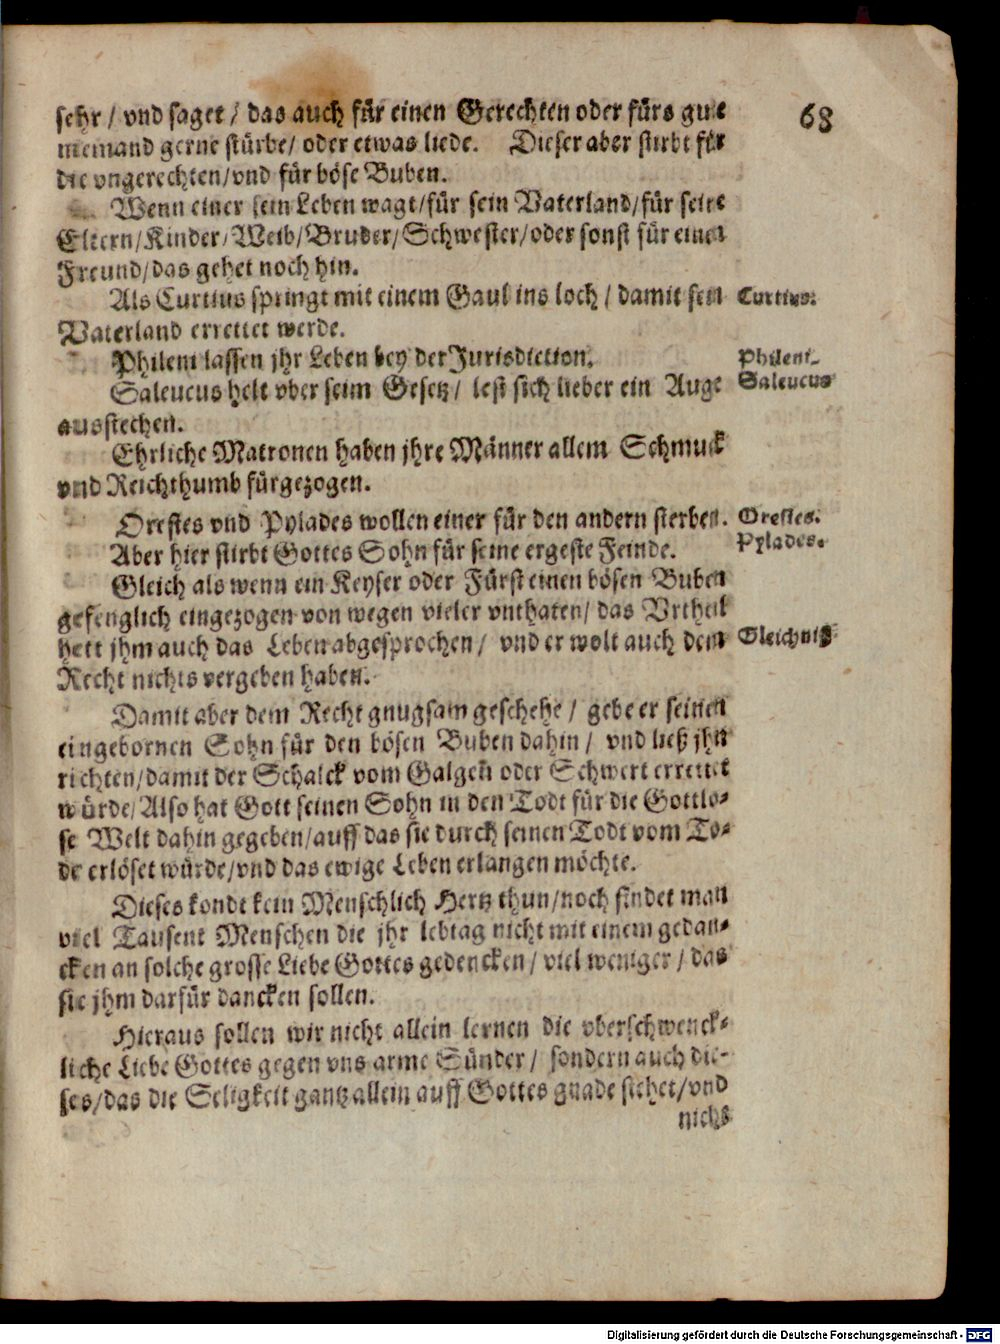 68
sehr / vnd saget / das auch für einen Gerechten oder fürs gute
niemand gerne stürbe / oder etwas liede. Dieser aber stirbt für
die vngerechten / vnd für böse Buben.
Wenn einer sein Leben wagt / für sein Vaterland / für seine
Eltern / Kinder / Weib / Bruder / Schwester / oder sonst für einen
Freund / das gehet noch hin.
Als Curtius springt mit einem Gaul ins loch / damit sein
Curtius.
Vaterland errettet werde.
Phileni lassen jhr Leben bey der Jurisdiction.
Phileni.
Saleucus helt vber seim Gesetz / lest sich lieber ein Auge
Saleucus
ausstechen.
Ehrliche Matronen haben jhre Männer allem Schmuck
vnd Reichthumb fürgezogen.
Orestes vnd Pylades wollen einer für den andern sterben.
Orestes.
Aber hier stirbt Gottes Sohn für seine ergeste Feinde.
Pylades.
Gleich als wenn ein Keyser oder Fürst einen bösen Buben
gefenglich eingezogen von wegen vieler vnthaten / das Vrtheil
hett jhm auch das Leben abgesprochen / vnd er wolt auch dem
Gleichniß
Recht nichts vergeben haben.
Damit aber dem Recht gnugsam geschehe / gebe er seinen
eingebornen Sohn für den bösen Buben dahin / vnd ließ jhn
richten / damit der Schalck vom Galgen oder Schwert errettet
würde / Also hat Gott seinen Sohn in den Todt für die Gottlo-
se Welt dahin gegeben / auff das sie durch seinen Todt vom To-
de erlöset würde / vnd das ewige Leben erlangen möchte.
Dieses kondt kein Menschlich Hertz thun / noch findet man
viel Tausent Menschen die jhr lebtag nicht mit einem gedan-
cken an solche grosse Liebe Gottes gedencken / viel weniger / das
sie jhm darfür dancken sollen.
Hieraus sollen wir nicht allein lernen die vberschwenck-
liche Liebe Gottes gegen vns arme Sünder / sondern auch die-
ses / das die Seligkeit gantz allein auff Gottes gnade stehet / vnd
nichs
Digitalisierung gefördert durch die Deutsche Forschungsgemeinschaft - DFG